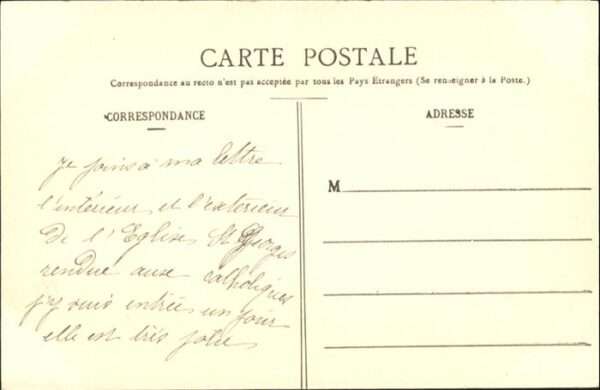 CARTE POSTALE
Correspondance au recto n'est pas acceptée par tous les Pays Etrangers (Se renseigner à la Poste.)
CORRESPONDANCE
Je joins à ma lettre
l'intérieur et l'extérieur
de l'Eglise St Georges
rendue aux catholiques
j'y suis entrée un jour
elle est très jolie
ADRESSE
M